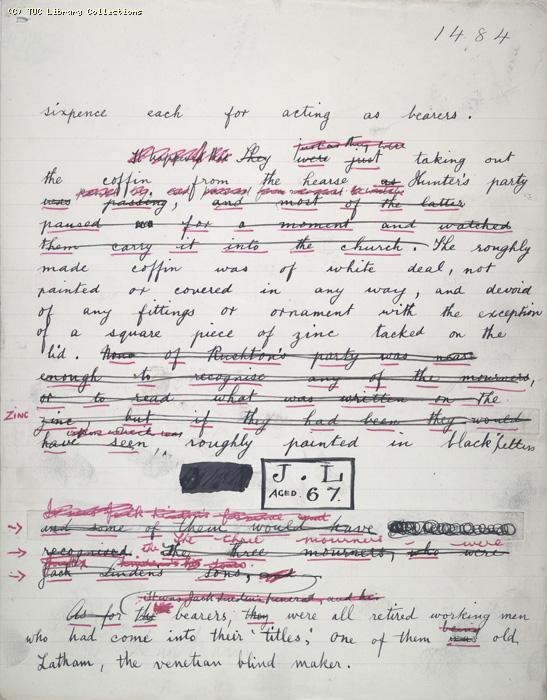 (C) TUC Library Collections
1484
sixpence each for acting as bearers.
just as they were
It happened that They were just taking out
the coffin from the hearse as Hunter's party
was passing, and most of the latter
paused for a moment and watched
them carry it into the church. The roughly
made coffin was of white deal, not
painted or covered in any way, and devoid
of any fittings or ornament with the exception
of a square piece of zinc tacked on the
lid. None of Rushton's party was near
enough to recognise any of the mourners,
or to read what was written on the
ZINC
zinc, but if they had been they would
upon which was
have seen, roughly painted in black letters
J. L
AGED. 67.
and some of them would have
The three mourners
recognised. the three mourners, who were
Jack Linden's sons,
it was Jack Linden's funeral, and
As for the bearers, they were all retired working men
who had come into their 'titles,' One of them being was old
Latham, the venetian blind maker.